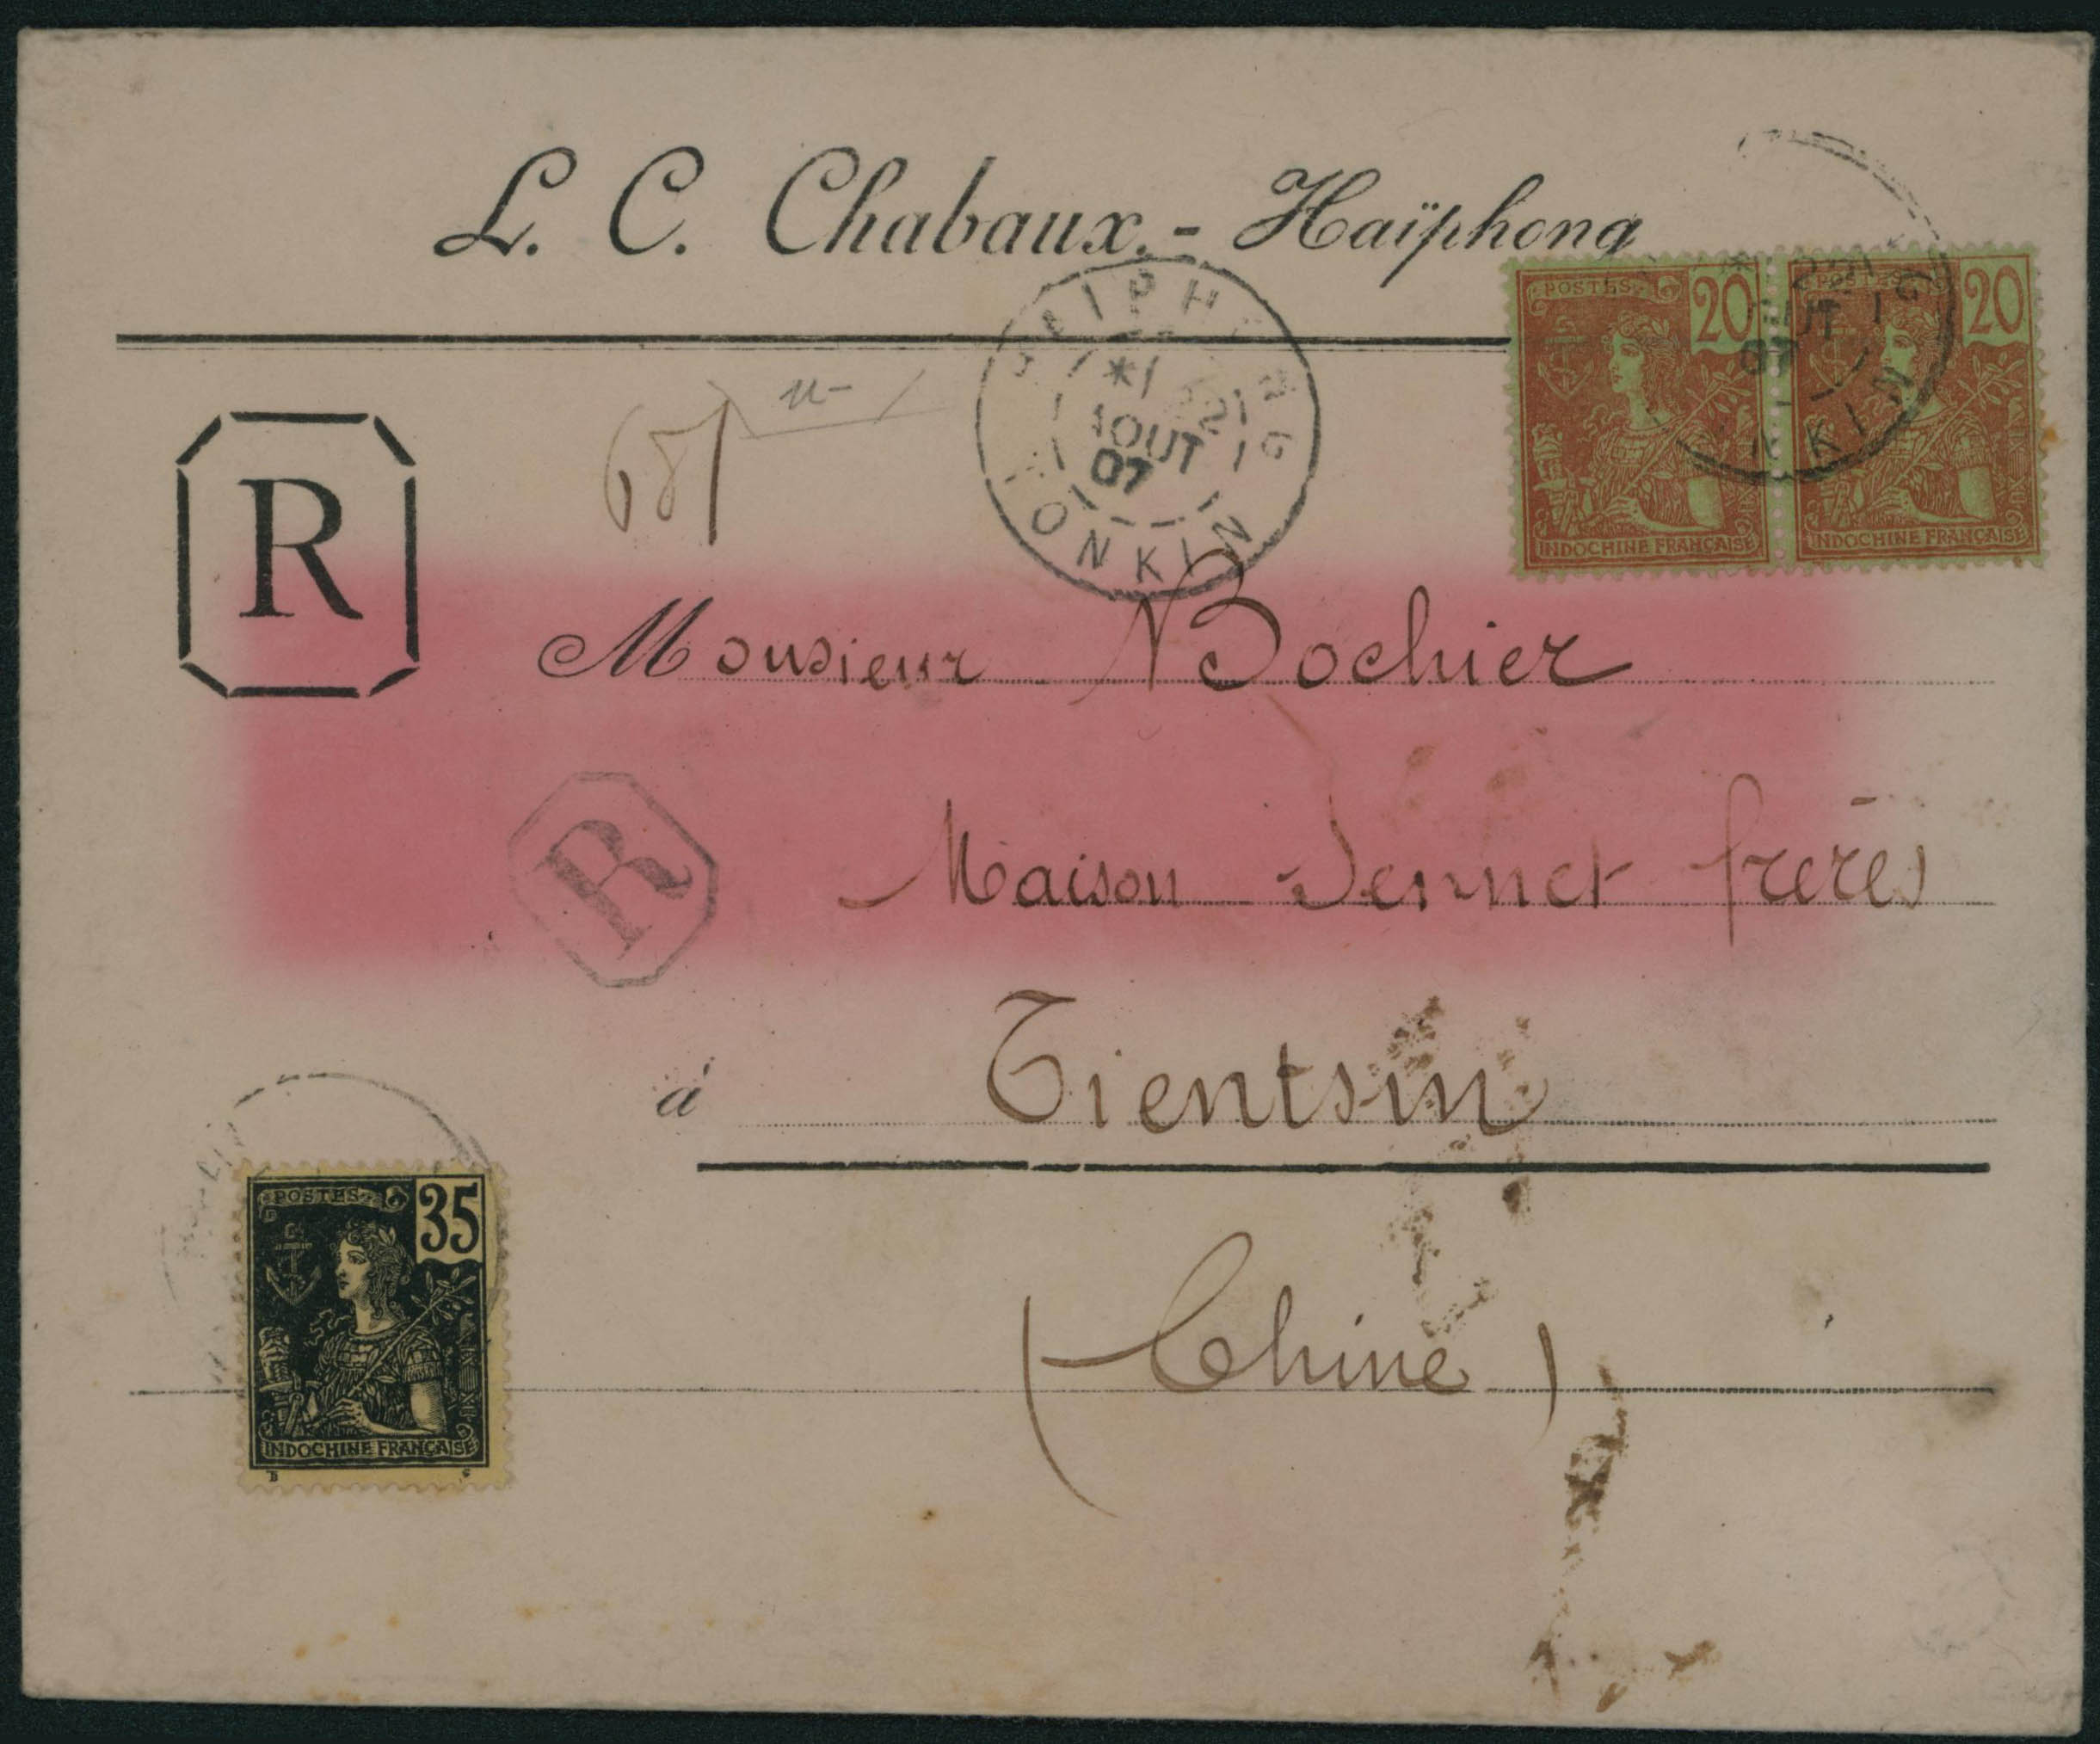 L. C. Chabaux. - Haïphong
POSTES 20
INDOCHINE FRANÇAISE
POSTES 20
INDOCHINE FRANÇAISE
AOUT
07
KIN
HAIPHONG
22
AOUT
07
TONKIN
R
681
Monsieur Bochier
R
Maison Sennet frères
à Tientsin
(Chine)
POSTES 35
INDOCHINE FRANÇAISE